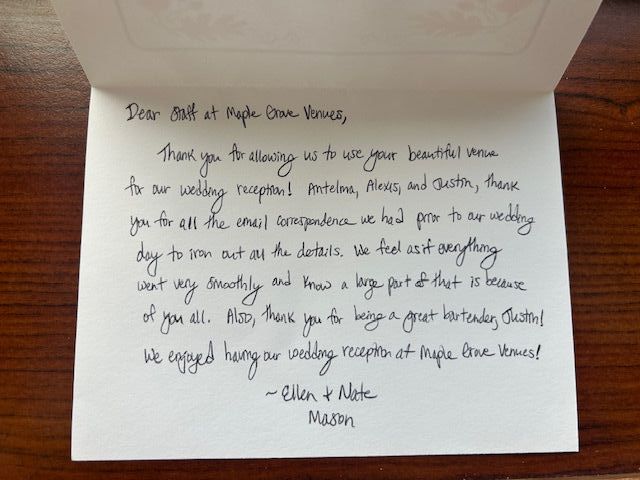 Dear Staff at Maple Grove Venues,
Thank you for allowing us to use your beautiful venue
for our wedding reception! Antelma, Alexis, and Justin, thank
you for all the email correspondence we had prior to our wedding
day to iron out all the details. We feel as if everything
went very smoothly and know a large part of that is because
of you all. Also, thank you for being a great bartender, Justin!
We enjoyed having our wedding reception at Maple Grove Venues!
~ Ellen & Nate
Mason